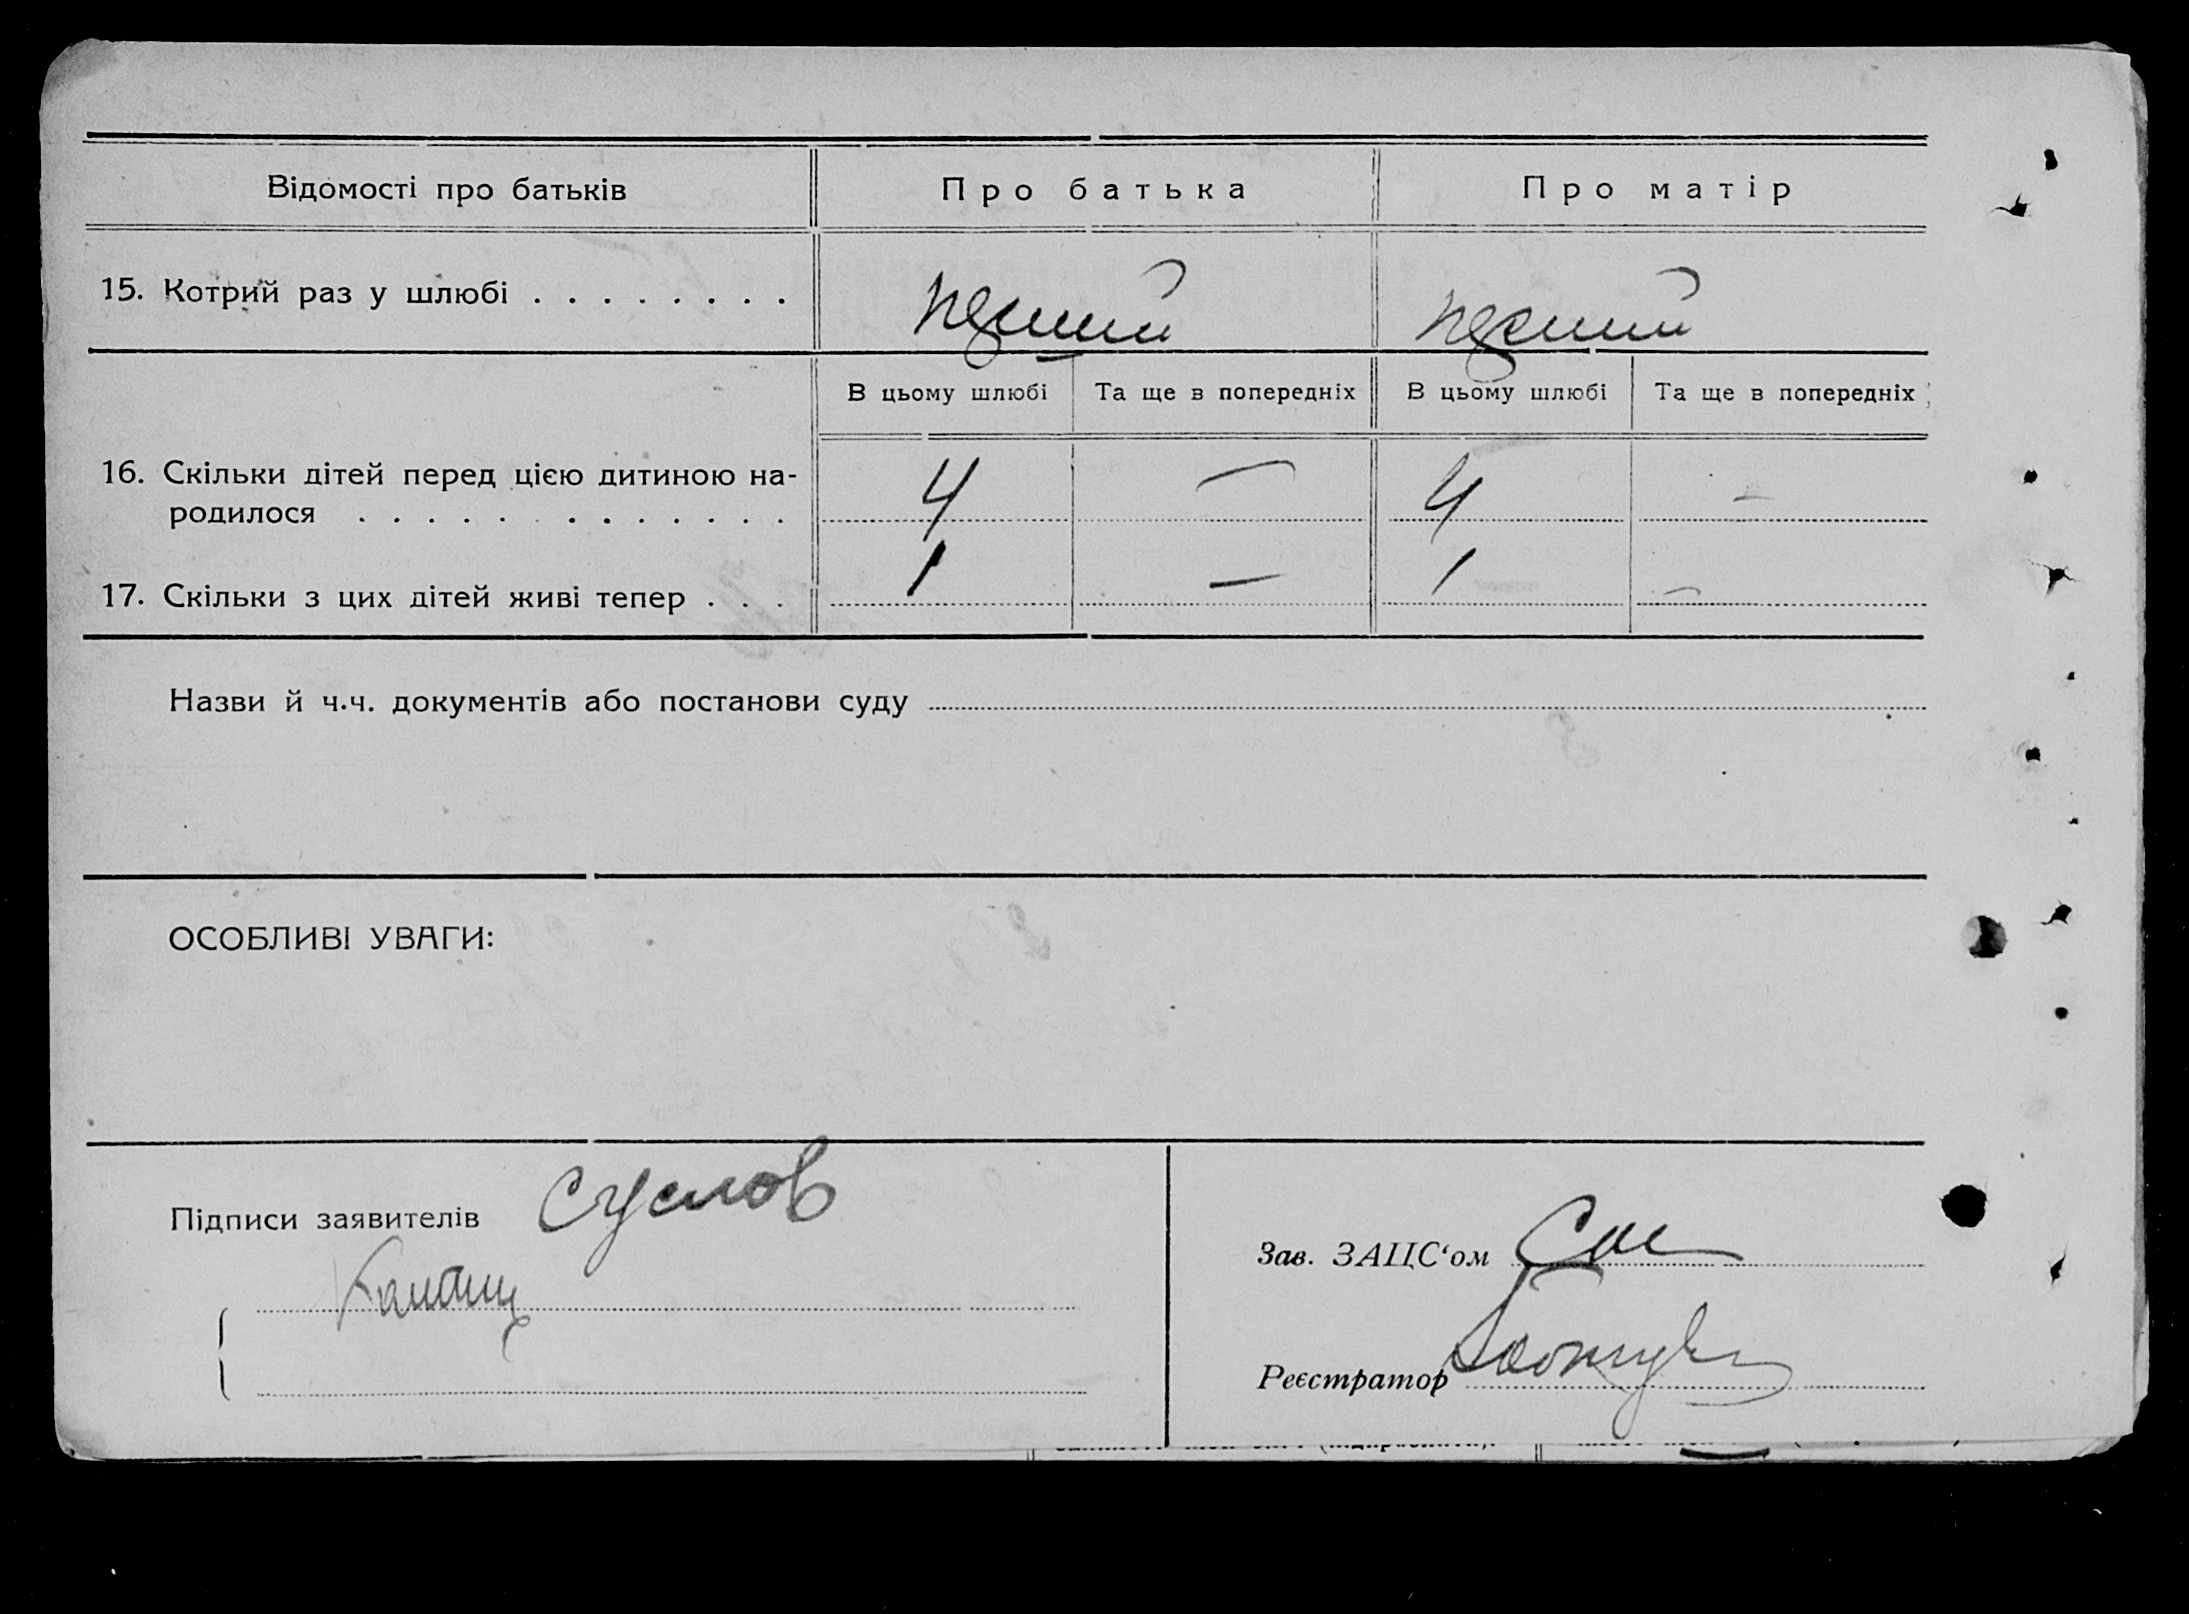 Відомості про батьків
Про батька
Про матір
15. Котрий раз у шлюбі . . . . . . . .
перший
перший
В цьому шлюбі
Та ще в попередніх
В цьому шлюбі
Та ще в попередніх
16. Скільки дітей перед цією дитиною на-
родилося . . . . . . . . . . . . .
4
—
4
—
17. Скільки з цих дітей живі тепер . . .
1
—
1
—
Назви й ч.ч. документів або постанови суду
ОСОБЛИВІ УВАГИ:
Підписи заявителів
Суслов
Зав. ЗАЦС‘ом
Реєстратор